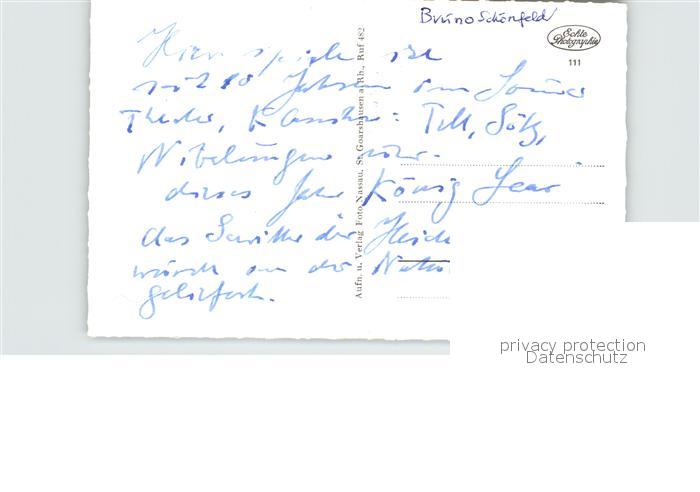 Bruno Schönfeld
Echte
Photographie
111
Hier spiele ich
seit 10 Jahren im Sommer
Theater, Klassiker: Tell, Götz,
Nibelungen usw.
dieses Jahr König Lear
das
der
geliefert.
Aufn. u. Verlag Foto Nassau, St. Goarshausen a. Rh., Ruf 482
privacy protection
Datenschutz